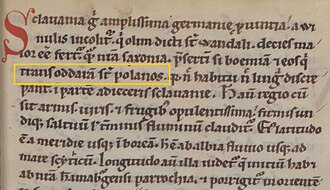 Sclauania g̃ amplissima germanie ꝓuintia. a wi
nulis incolit᷑. q̃ olim dicti st̃ wandali. decies ma
ior eē fert᷑. q̃ nr̃a saxonia. p̃serti si boemiā ⁊ eos q̃
trans oddarā st̃ polanos. q̃ n̄ habitu n̄ lingͣ discre
pant. ī partē adieceris sclauanie. Hau regio cū
sit armis. uiris. ⁊ frugib᷒ opulentissima. firmis un
diq᷒ saltuū l̃ tminis fluminū claudit᷑. Ei᷒ latitudo
ē a meridie usq᷒ ī boreā. h̄ ē ab albia fluuio usq᷒ ad
mare scyticū. Longitudo au illa uidet᷑. q̃ initiū hab᷒
ab nr̃a hāmaburgensi parrochia. ⁊ porrigit᷑ ī orientē